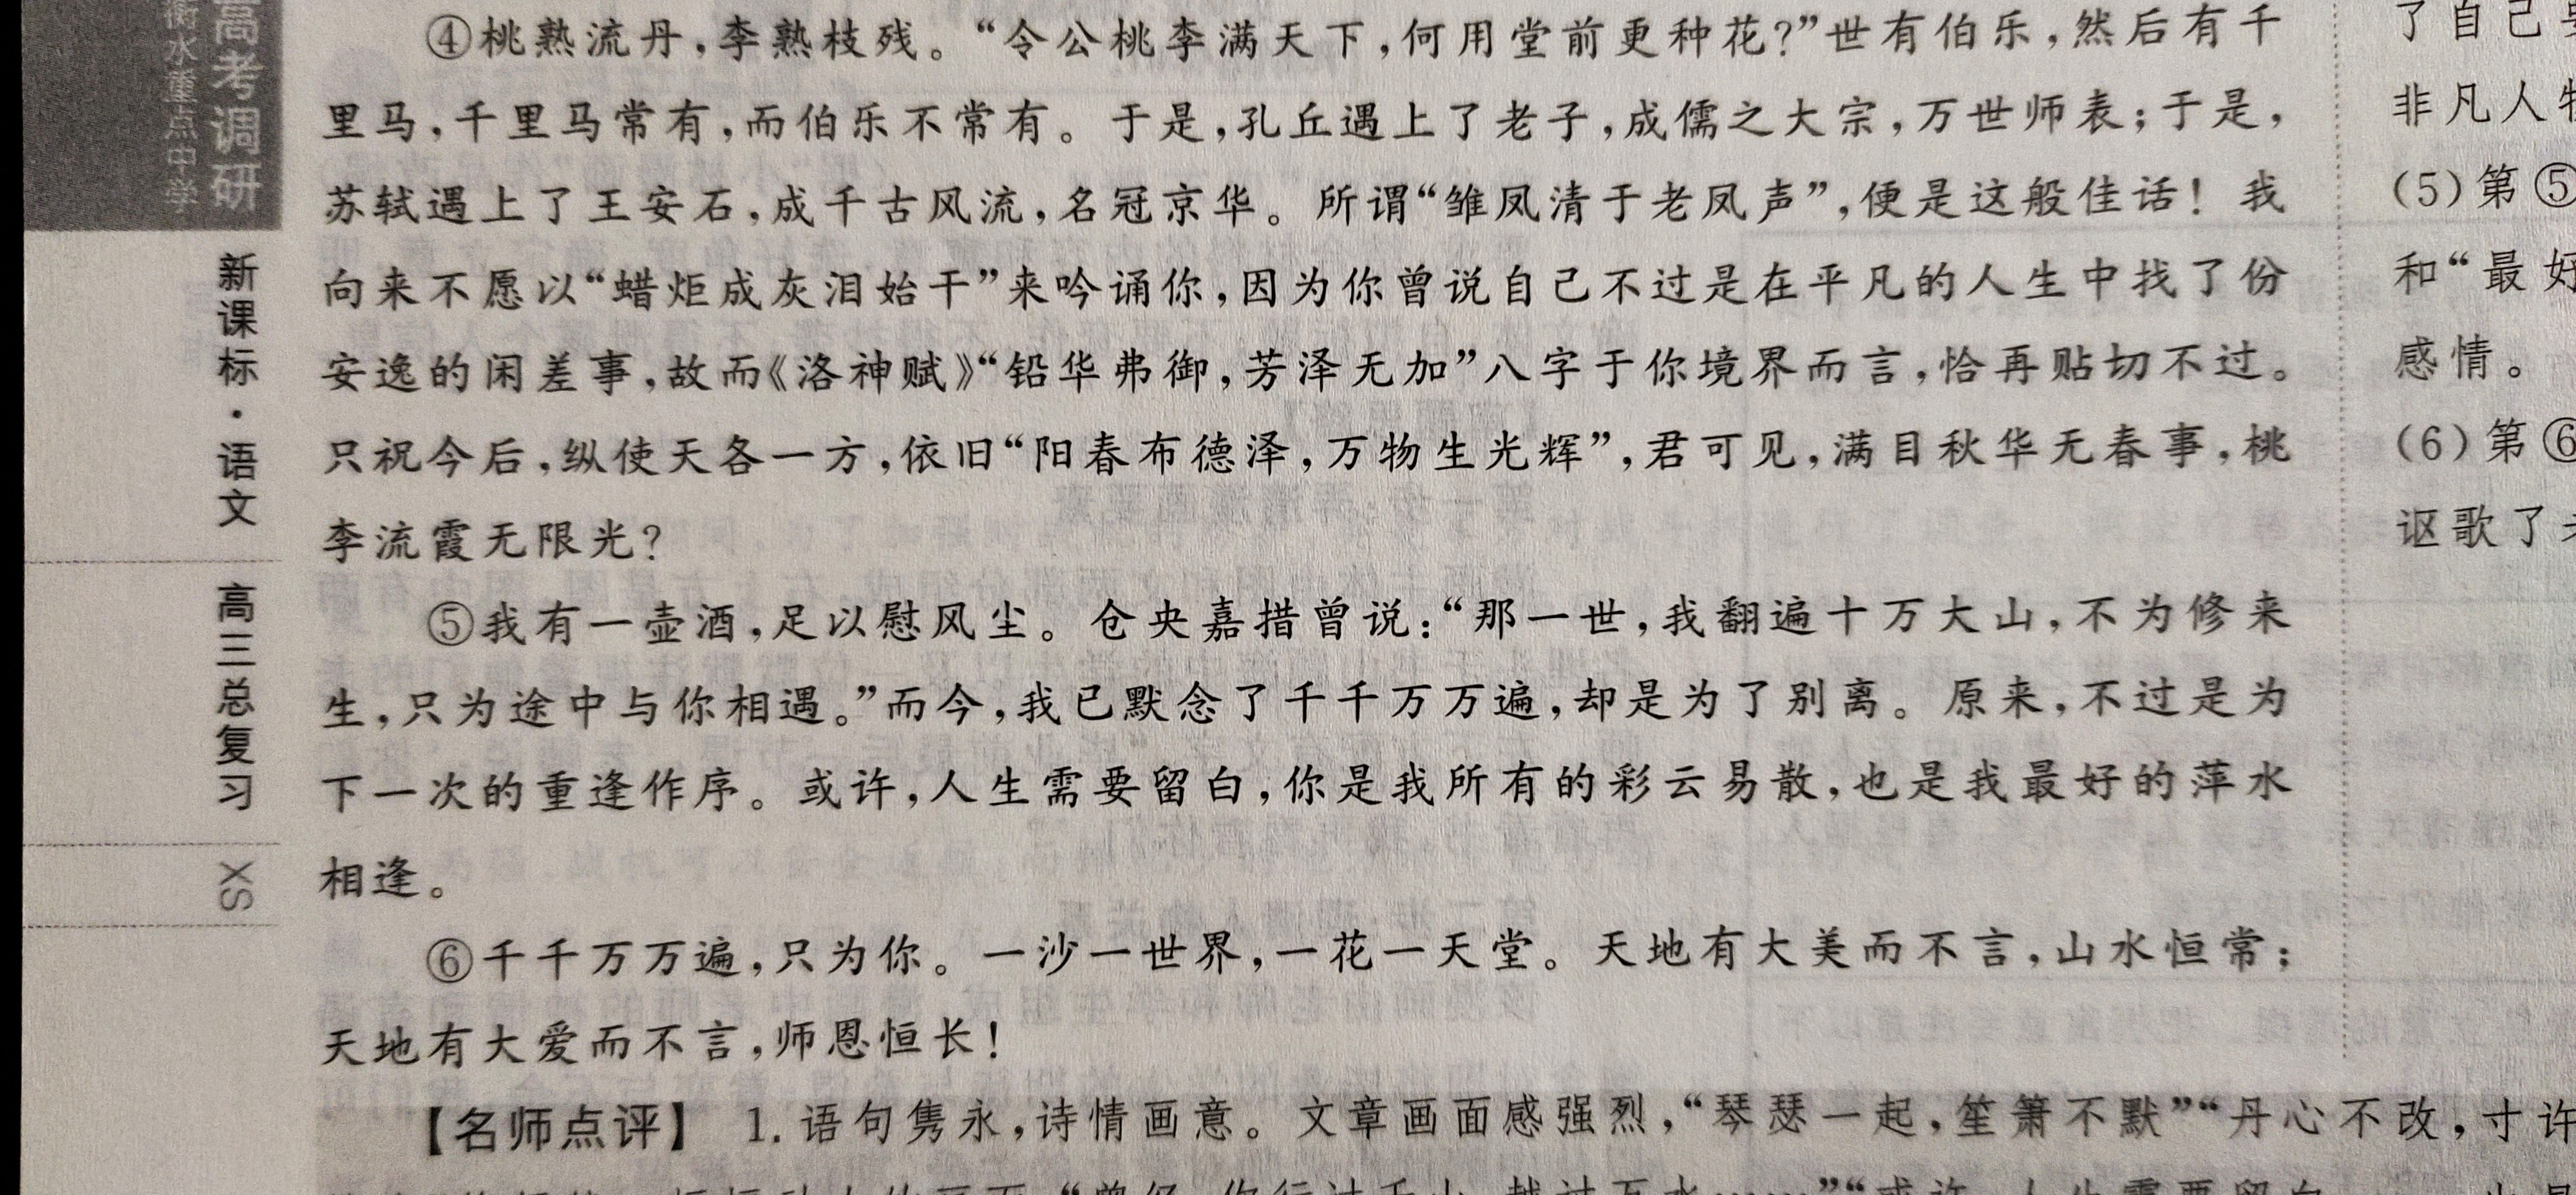 高考调研
衡水重点中学
新课标·语文
高三总复习
XS
④桃熟流丹,李熟枝残。“令公桃李满天下,何用堂前更种花?”世有伯乐,然后有千
里马,千里马常有,而伯乐不常有。于是,孔丘遇上了老子,成儒之大宗,万世师表;于是,
苏轼遇上了王安石,成千古风流,名冠京华。所谓“雏凤清于老凤声”,便是这般佳话!我
向来不愿以“蜡炬成灰泪始干”来吟诵你,因为你曾说自己不过是在平凡的人生中找了份
安逸的闲差事,故而《洛神赋》“铅华弗御,芳泽无加”八字于你境界而言,恰再贴切不过。
只祝今后,纵使天各一方,依旧“阳春布德泽,万物生光辉”,君可见,满目秋华无春事,桃
李流霞无限光?
⑤我有一壶酒,足以慰风尘。仓央嘉措曾说:“那一世,我翻遍十万大山,不为修来
生,只为途中与你相遇。”而今,我已默念了千千万万遍,却是为了别离。原来,不过是为
下一次的重逢作序。或许,人生需要留白,你是我所有的彩云易散,也是我最好的萍水
相逢。
⑥千千万万遍,只为你。一沙一世界,一花一天堂。天地有大美而不言,山水恒常;
天地有大爱而不言,师恩恒长!
【名师点评】 1.语句隽永,诗情画意。文章画面感强烈,“琴瑟一起,笙箫不默”“丹心不改,寸许
了自己
非凡人
(5)第⑤
和“最好
感情。
(6)第⑥
讴歌了